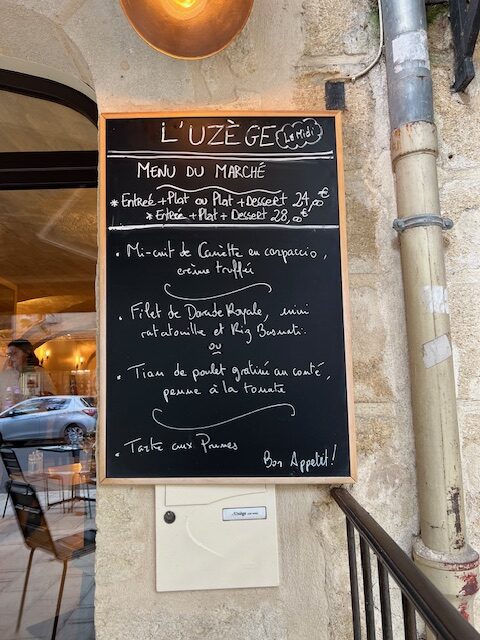 L'UZÈGE Le Midi
MENU DU MARCHÉ
* Entrée + Plat ou Plat + Dessert 24,00€
* Entrée + Plat + Dessert 28,00€
• Mi-cuit de Canette en carpaccio,
crème truffée
• Filet de Dorade Royale, mini
ratatouille et Riz Basmati.
ou
• Tian de poulet gratiné au conté,
penne à la tomate
• Tarte aux Prunes
Bon Appetit!
L'Uzège